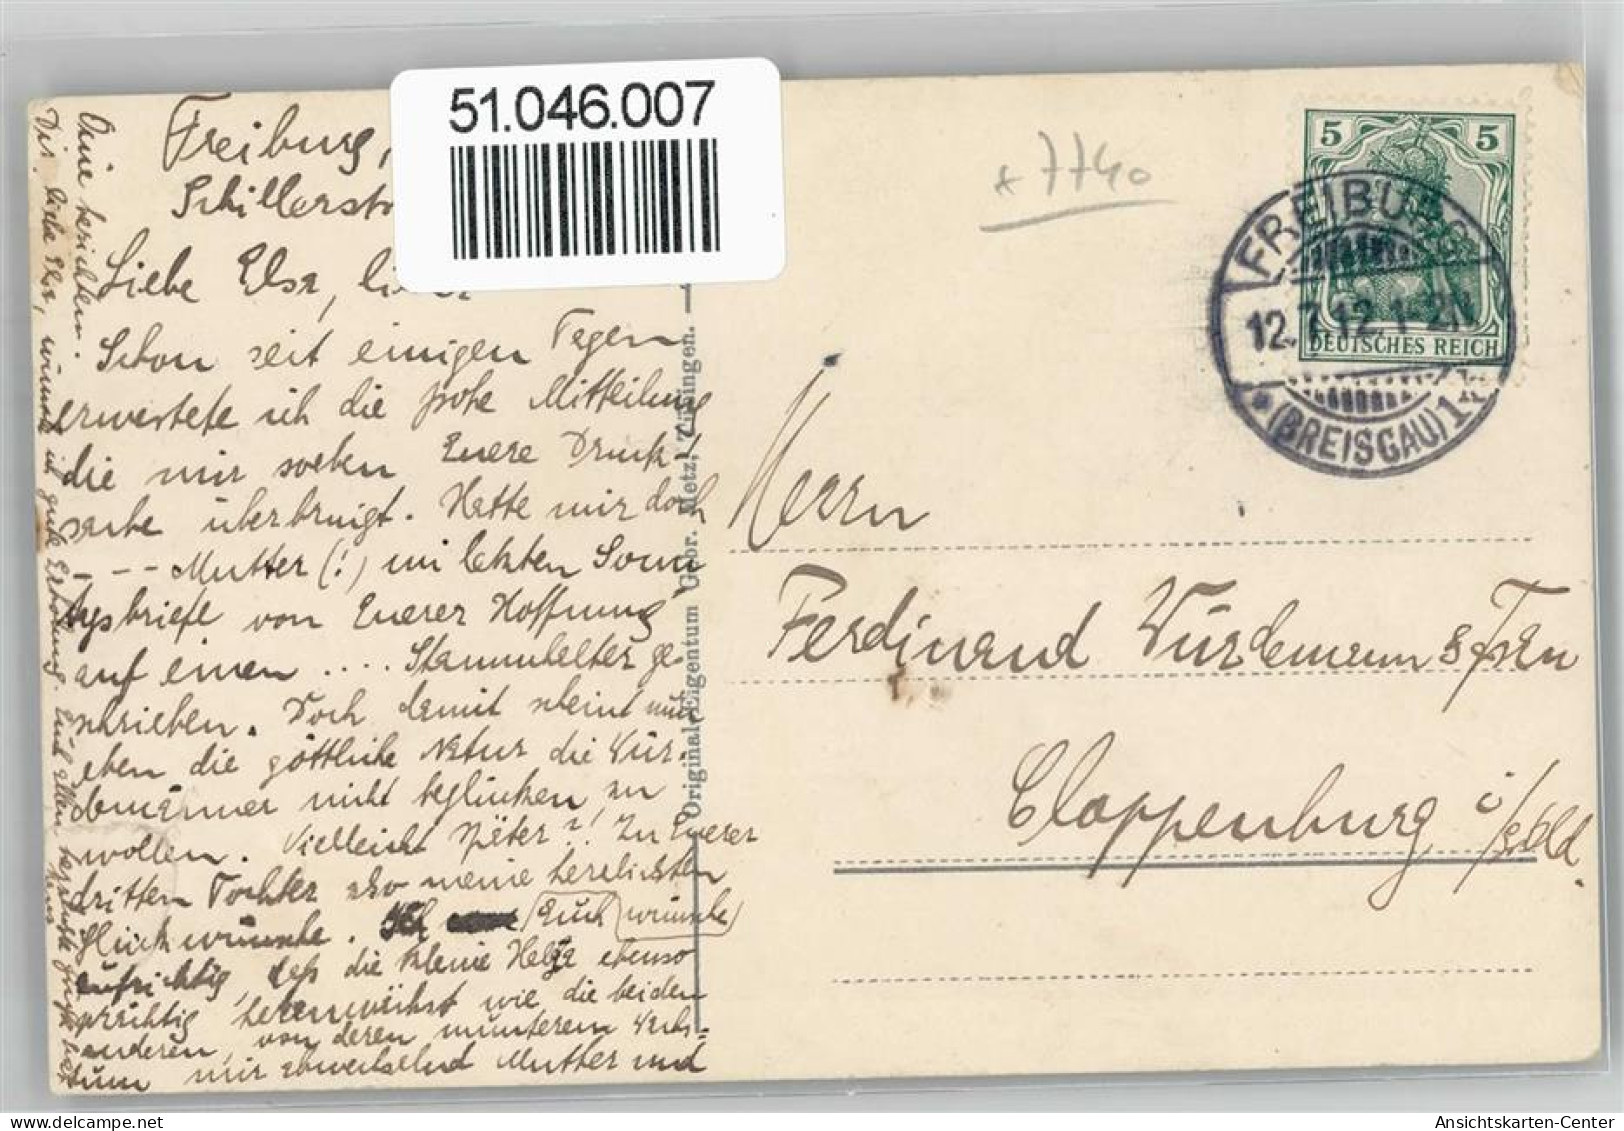 51.046.007
Freiburg,
Schillerstr
Liebe Elsa,
Schon seit einigen Tagen
erwartete ich die frohe Mitteilung
die mir soeben Euere Druck-
sache überbringt. Hatte mir doch
- - - Mutter (!) im letzten Sonn-
tagsbriefe von Euerer Hoffnung
auf einen .... Stammhalter ge-
schrieben. Doch damit scheint nun
eben die göttliche Natur die Wür-
demänner nicht beglücken zu
wollen. Vielleicht später?! Zu Euerer
dritten Tochter also meine herzlichsten
Glückwünsche. Ich Euch wünsche
aufrichtig, daß die kleine Helga ebenso
prächtig heranwächst wie die beiden
anderen, von deren munterem Wachs-
tum mir abwechselnd Mutter und
berichten.
Dir, liebe Elsa, wünsche ich gute Erholung. Euch allen
Original-Eigentum Gebr. Metz, Tübingen.
* 7740
5 5
DEUTSCHES REICH
FREIBURG
12.7.12.1-2N
* (BREISGAU) 1
Herrn
Ferdinand Würdemann & Frau
Cloppenburg i/Oldbg.
AnsichtsKarten-Center